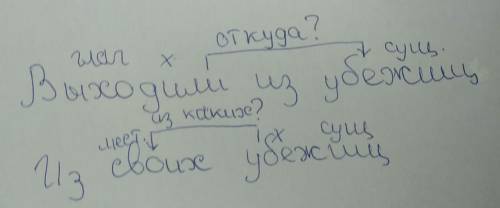 откуда?
глаг х сущ.
Выходили из убежищ
из каких?
мест. х сущ
Из своих убежищ